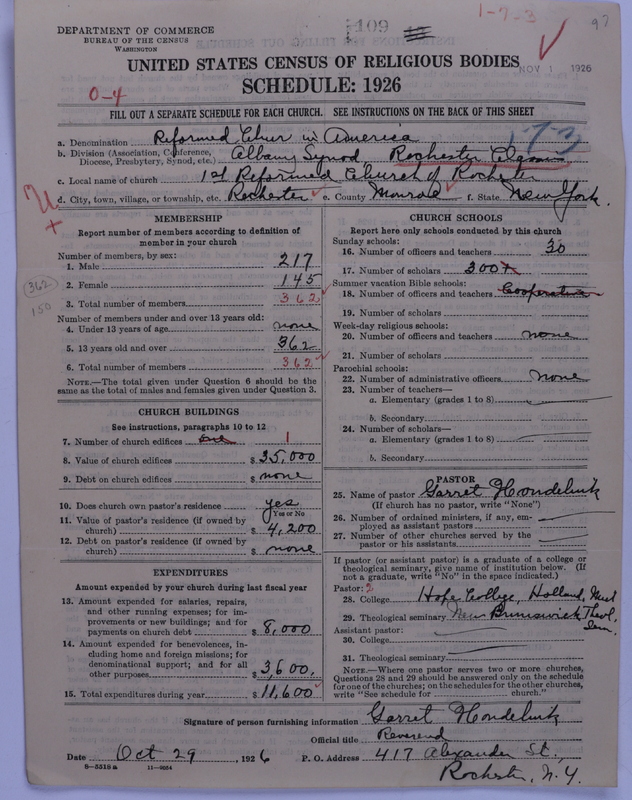 DEPARTMENT OF COMMERCE
BUREAU OF THE CENSUS
WASHINGTON
109
1-7-3
97
UNITED STATES CENSUS OF RELIGIOUS BODIES
NOV 1 1926
SCHEDULE: 1926
0-4
FILL OUT A SEPARATE SCHEDULE FOR EACH CHURCH. SEE INSTRUCTIONS ON THE BACK OF THIS SHEET
173
a. Denomination Reformed Chur in America
b. Division (Association, Conference, Diocese, Presbytery, Synod, etc.) Albany Synod Rochester
c. Local name of church 1st Reformed Church of Rochester
d. City, town, village, or township, etc. Rochester e. County Monroe f. State New York.
MEMBERSHIP
Report number of members according to definition of
member in your church
Number of members, by sex:
1. Male 217
2. Female 145
3. Total number of members 362
362
150
Number of members under and over 13 years old:
4. Under 13 years of age none
5. 13 years old and over 362
6. Total number of members 362
NOTE.—The total given under Question 6 should be the
same as the total of males and females given under Question 3.
CHURCH BUILDINGS
See instructions, paragraphs 10 to 12
7. Number of church edifices one 1
8. Value of church edifices $ 35,000
9. Debt on church edifices $ none
10. Does church own pastor's residence? yes
Yes or No
11. Value of pastor's residence (if owned by
church) $ 4,200
12. Debt on pastor's residence (if owned by
church) $ none
EXPENDITURES
Amount expended by your church during last fiscal year
13. Amount expended for salaries, repairs,
and other running expenses; for im-
provements or new buildings; and for
payments on church debt $ 8,000
14. Amount expended for benevolences, in-
cluding home and foreign missions; for
denominational support; and for all
other purposes $ 3,600.
15. Total expenditures during year $ 11,600
CHURCH SCHOOLS
Report here only schools conducted by this church
Sunday schools:
16. Number of officers and teachers 30
17. Number of scholars 300
Summer vacation Bible schools:
18. Number of officers and teachers Cooperative
19. Number of scholars
Week-day religious schools:
20. Number of officers and teachers none
21. Number of scholars
Parochial schools:
22. Number of administrative officers none
23. Number of teachers—
a. Elementary (grades 1 to 8)
b. Secondary
24. Number of scholars—
a. Elementary (grades 1 to 8)
b. Secondary
PASTOR
25. Name of pastor Garret Hondelink
(If church has no pastor, write "None")
26. Number of ordained ministers, if any, em-
ployed as assistant pastors
27. Number of other churches served by the
pastor or his assistants
If pastor (or assistant pastor) is a graduate of a college or
theological seminary, give name of institution below. (If
not a graduate, write "No" in the space indicated.)
Pastor: 2
28. College Hope College, Holland, Mich
29. Theological seminary New Brunswick Theol. Sem
Assistant pastor:
30. College
31. Theological seminary
NOTE.—Where one pastor serves two or more churches,
Questions 28 and 29 should be answered only on the schedule
for one of the churches; on the schedules for the other churches,
write "See schedule for church."
Signature of person furnishing information Garret Hondelink
Official title Reverend
Date Oct 29, 1926 P. O. Address 417 Alexander St.,
Rochester, N. Y.
8—5518 a 11—9054